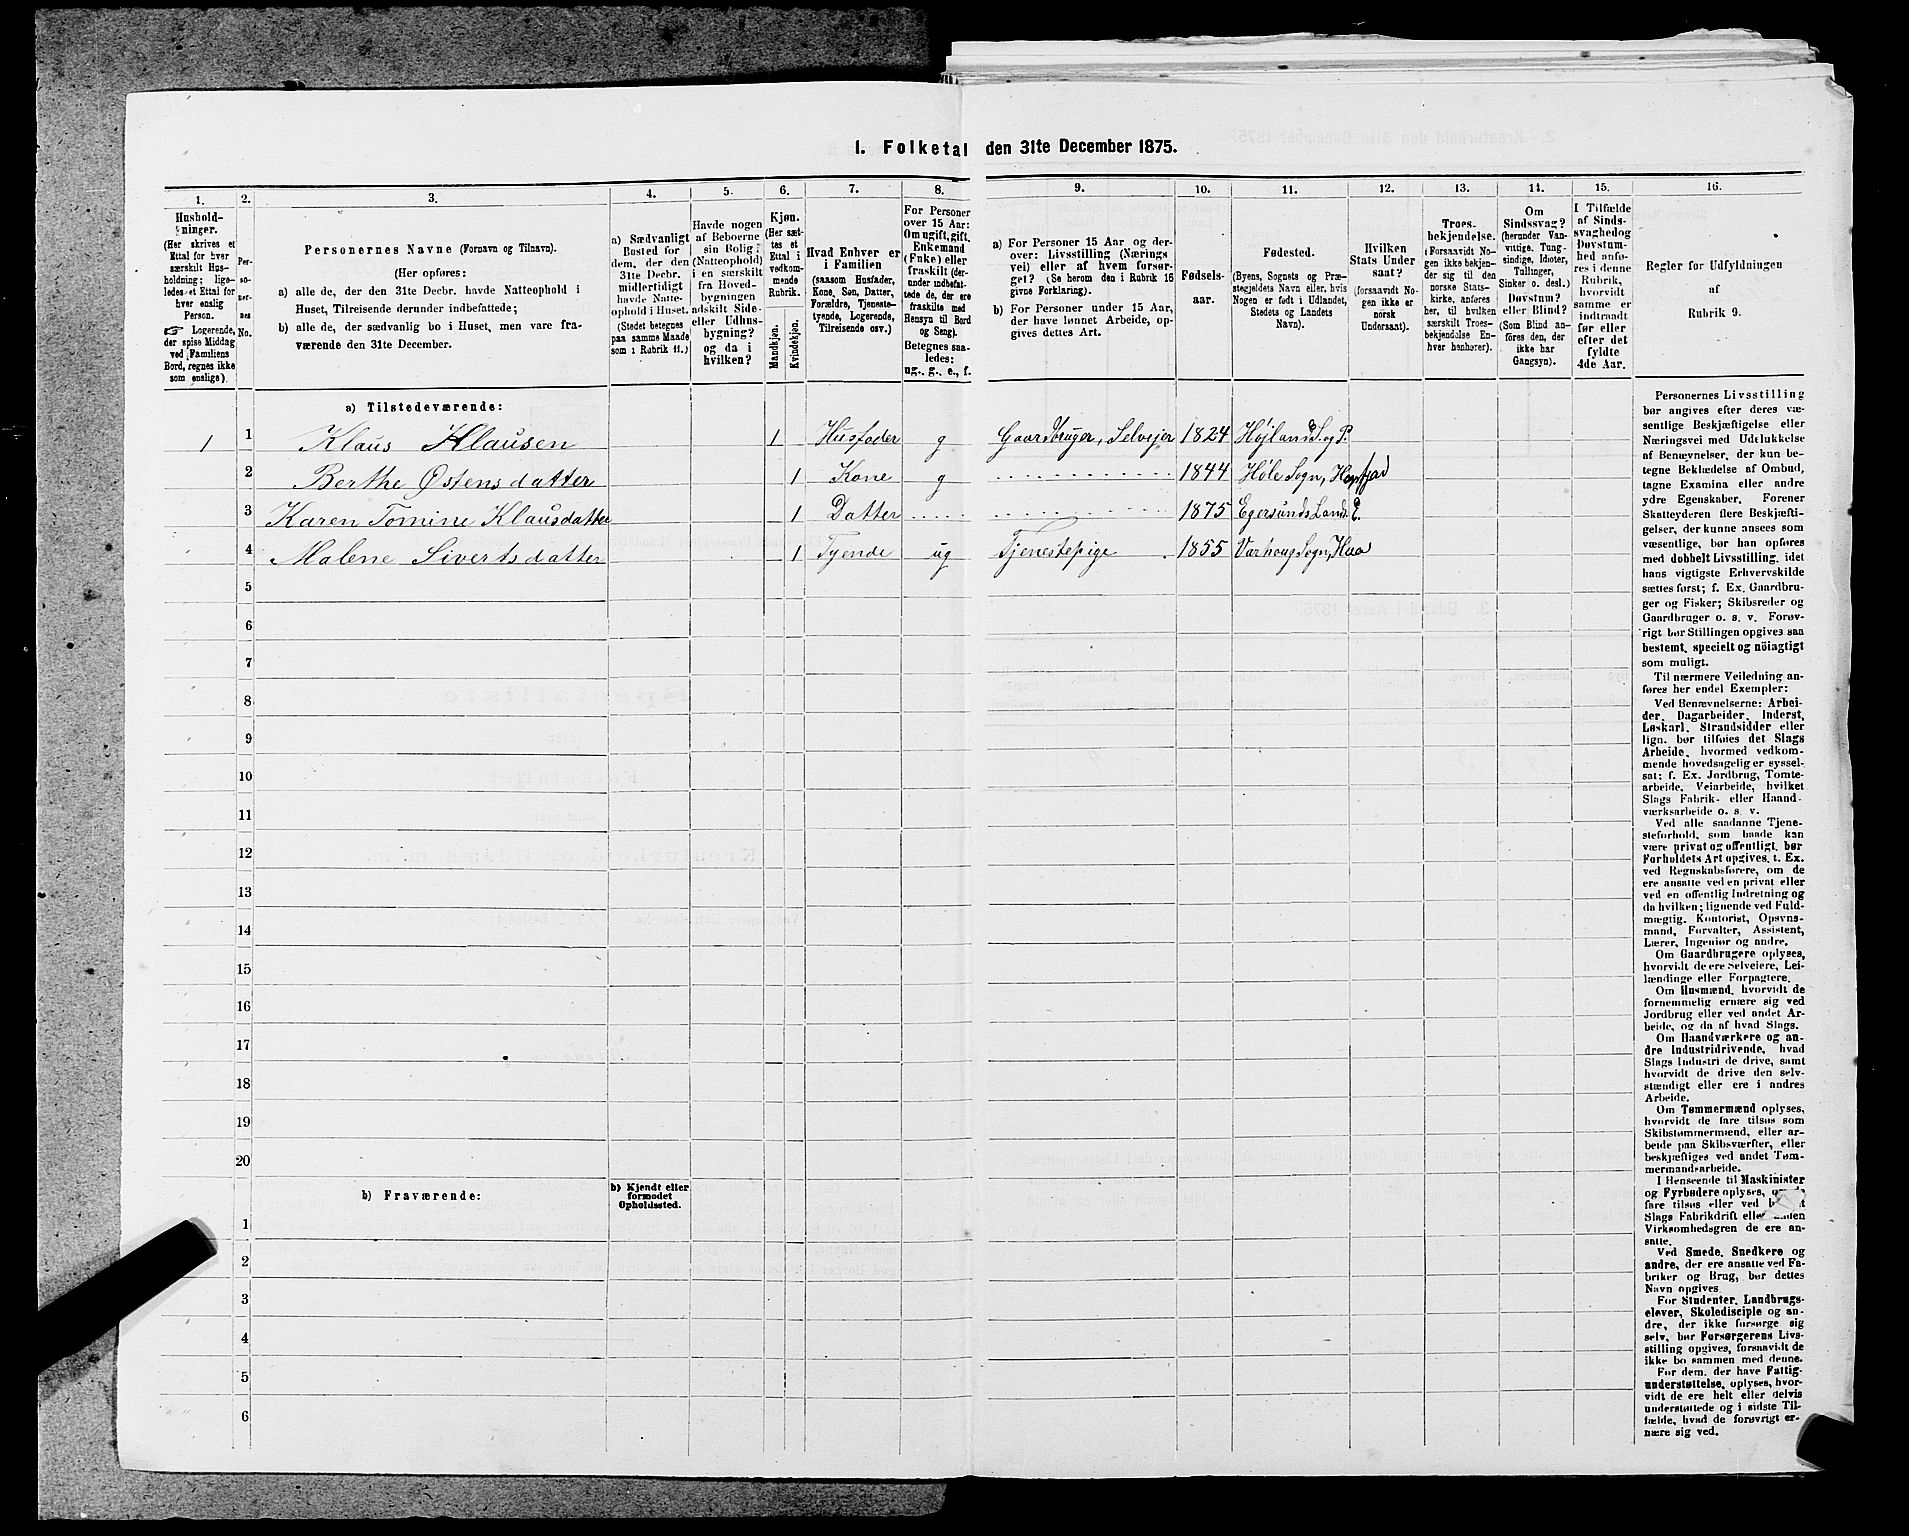 1. Folketal den 31te December 1875.
1. 2. 3. 4. 5. 6. 7. 8. 9. 10. 11. 12. 13. 14. 15. 16.
Hushold-
ninger.
(Her skrives et
Ettal for hver
særskilt Hus-
holdning; lige-
ledes et Ettal for
hver enslig
Person.
☞ Logerende,
der spise Middag
ved Familiens
Bord, regnes ikke
som enslige).
Per-
so-
ner-
nes
No.
Personernes Navne (Fornavn og Tilnavn).
(Her opføres:
a) alle de, der den 31te Decbr. havde Natteophold i
Huset, Tilreisende derunder indbefattede;
b) alle de, der sædvanlig bo i Huset, men vare fra-
værende den 31te December.
a) Sædvanligt
Bosted for
dem, der den
31te Decbr.
midlertidigt
havde Natte-
ophold i Huset.
(Stedet betegnes
paa samme Maade
som i Rubrik 11.)
Havde nogen
af Beboerne
sin Bolig
(Natteophold)
i en særskilt
fra Hoved-
bygningen
adskilt Side-
eller Udhus-
bygning?
og da i
hvilken?
Kjøn.
(Her sæt-
tes et
Ettal i
vedkom-
mende
Rubrik.
Mandkjøn.
Kvindekjøn.
Hvad Enhver er
i Familien
(saasom Husfader,
Kone, Søn, Datter,
Forældre, Tjeneste-
tyende, Logerende,
Tilreisende osv.)
For Personer
over 15 Aar:
Om ugift, gift,
Enkemand
(Enke) eller
fraskilt (der-
under indbefat-
tede de, der ere
fraskilte med
Hensyn til Bord
og Seng).
Betegnes saa-
ledes:
ug., g., e., f.
a) For Personer 15 Aar og der-
over: Livsstilling (Nærings
vei) eller af hvem forsør-
get? (Se herom den i Rubrik 16
givne Forklaring).
b) For Personer under 15 Aar,
der have lønnet Arbeide, op-
gives dettes Art.
Fødsels-
aar.
Fødested.
(Byens, Sognets og Præ-
stegjeldets Navn eller, hvis
Nogen er født i Udlandet,
Stedets og Landets
Navn).
Hvilken
Stats Under
saat?
(forsaavidt No-
gen ikke er
norsk
Undersaat).
Troes-
bekjendelse.
(Forsaavidt No-
gen ikke bekjen-
der sig til den
norske Stats-
kirke, anføres
her, til hvilken
særskilt Troes-
bekjendelse En-
hver henhører).
Om
Sindssvag?
(herunder Van-
vittige, Tung-
sindige, Idioter,
Tullinger,
Sinker o. desl.)
Døvstum?
eller Blind?
(Som Blind an-
føres den, der
ikke har
Gangsyn).
I Tilfælde
af Sinds-
svaghed og
Døvstum-
hed anfø-
res i denne
Rubrik,
hvorvidt
samme er
indtraadt
før eller
efter det
fyldte
4de Aar.
Regler for Udfyldningen
af
Rubrik 9.
a) Tilstedeværende:
1 1 Klaus Klausen 1 Husfader g Gaardbruger, Selveier 1824 Højland S. og P.
2 Berthe Østensdatter 1 Kone g 1844 Høle Sogn,
3 Karen Tomine Klausdatter 1 Datter 1875 Egersunds Lands.
4 Malene Sivertsdatter 1 Tyende ug Tjenestepige 1855 Varhoug Sogn, Haa
5
6
7
8
9
10
11
12
13
14
15
16
17
18
19
20
b) Fraværende:
b) Kjendt eller
formodet
Opholdssted.
1
2
3
4
5
6
Personernes Livsstilling
bør angives efter deres væ-
sentlige Beskjæftigelse eller
Næringsvei med Udelukkelse
af Benævnelser, der kun be-
tegne Beklædelse af Ombud,
tagne Examina eller andre
ydre Egenskaber. Forener
Skatteyderen flere Beskjæfti-
gelser, der kunne ansees som
væsentlige, bør han opføres
med dobbelt Livsstilling, idet
hans vigtigste Erhvervskilde
sættes først; f. Ex. Gaardbru-
ger og Fisker; Skibsreder og
Gaardbruger o. s. v. Forøv-
rigt bør Stillingen opgives saa
bestemt, specielt og nöiagtigt
som muligt.
Til nærmere Veiledning an-
føres her endel Exempler:
Ved Benævnelserne: Arbei-
der, Dagarbeider, Inderst,
Løskarl, Strandsidder eller
lign. bør tilføies det Slags
Arbeide, hvormed vedkom-
mende hovedsagelig er syssel-
sat; f. Ex. Jordbrug, Tomte-
arbeide, Veiarbeide, hvilket
Slags Fabrik- eller Haand-
værksarbeide o. s. v.
Ved alle saadanne Tjene-
steforhold, som baade kan
være privat og offentligt, bør
Forholdets Art opgives, t. Ex.
ved Regnskabsførere, om de
ere ansatte ved en privat eller
ved en offentlig Indretning og
da hvilken; lignende ved Fuld-
mægtig, Kontorist, Opsyns-
mand, Forvalter, Assistent,
Lærer, Ingeniør og andre.
Om Gaardbrugere oplyses,
hvorvidt de ere Selveiere, Lei-
lændinge eller Forpagtere.
Om Husmænd, hvorvidt de
fornemmelig ernære sig ved
Jordbrug eller ved andet Ar-
beide, og da af hvad Slags.
Om Haandværkere og an-
dre Industridrivende, hvad
Slags Industri de drive, samt
hvorvidt de drive den selv-
stændigt eller ere i andres
Arbeide.
Om Tømmermænd oplyses,
hvorvidt de fare tilsøs som
Skibstømmermænd, eller ar-
beide paa Skibsværfter, eller
beskjæftiges ved andet Tøm-
mermandsarbeide.
I Henseende til Maskinister
og Fyrbødere oplyses,
fare tilsøs eller ved
Slags Fabrikdrift eller anden
Virksomhedsgren de ere an-
satte.
Ved Smede, Snedkere og
andre, der ere ansatte ved Fa-
briker og Brug, bør dettes
Navn opgives
For Studenter, Landbrugs-
elever, Skoledisciple og an-
dre, der ikke forsørge sig
selv, bør Forsørgerens Livs-
stilling opgives, forsaavidt de
ikke bo sammen med denne.
For dem, der have Fattig-
understøttelse, oplyses, hvor-
vidt de ere helt eller delvis
understøttede og i sidste Til-
fælde, hvad de forøvrigt er-
nære sig ved.